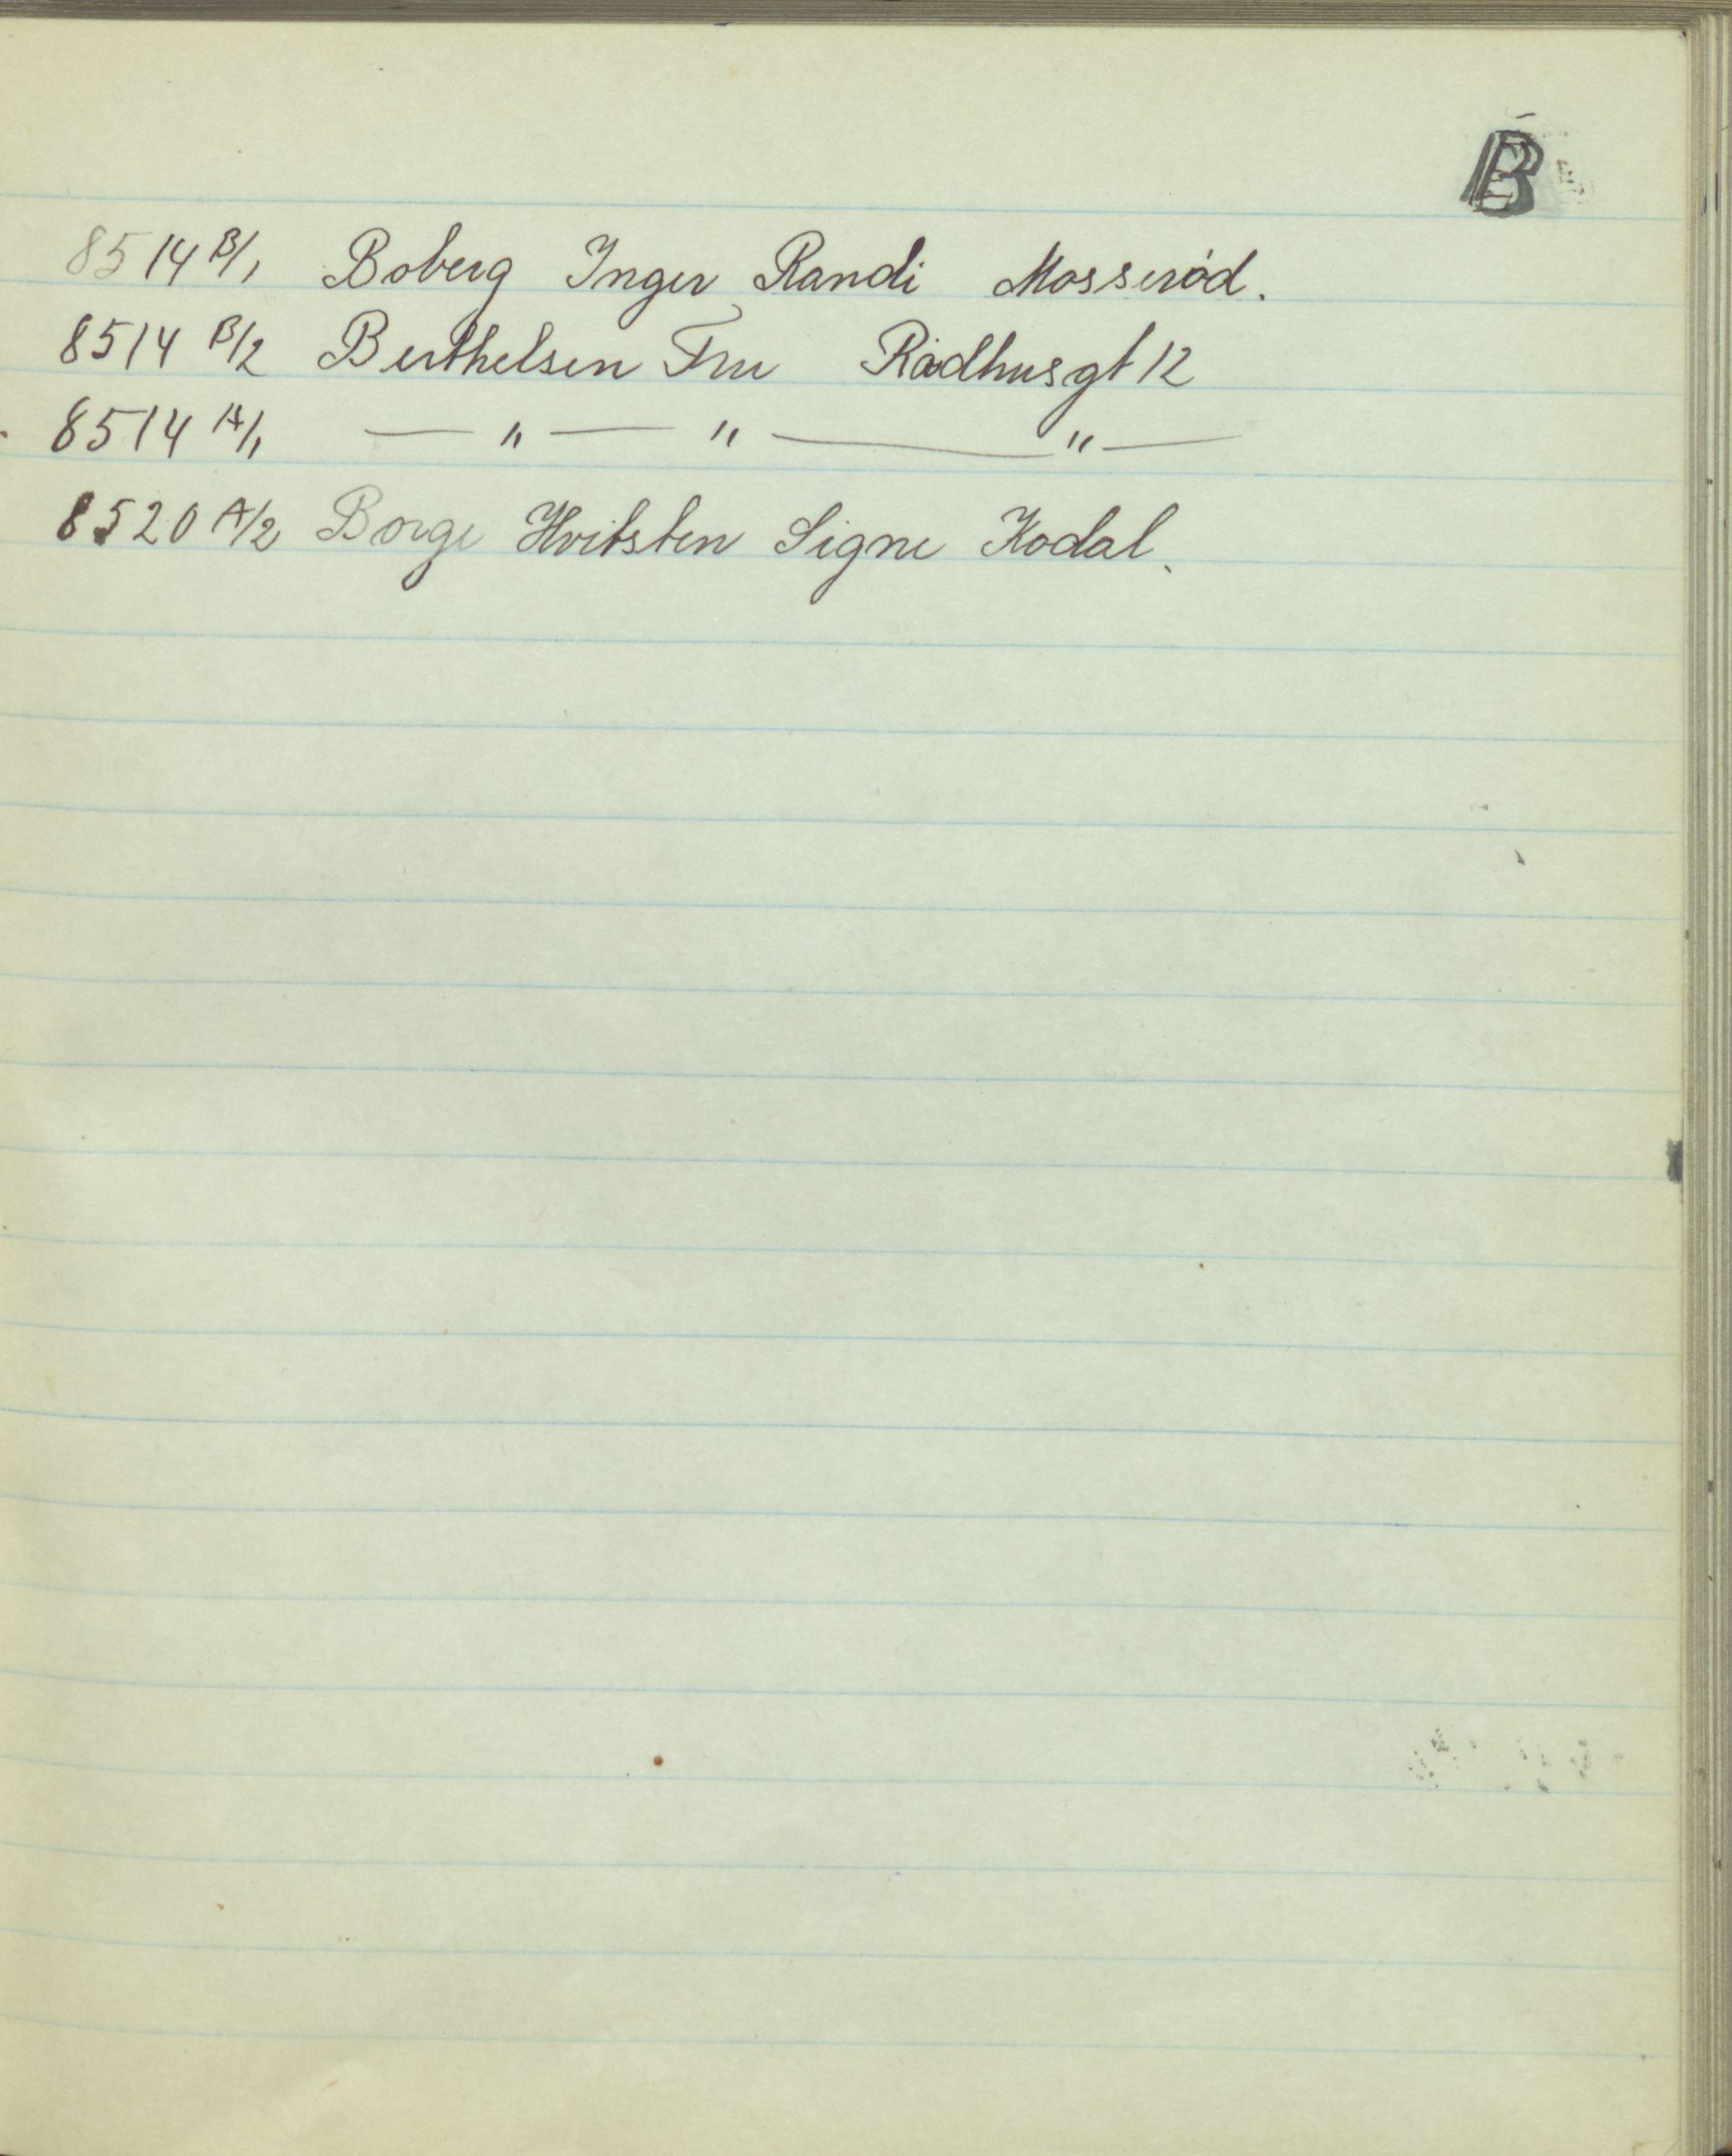 B
8514 B/1 Boberg Inger Randi Mosserød.
8514 B/2 Berthelsen Fru Rådhusgt 12
8514 A/1 — " — " — " —
8520 A/2 Borge Hvitsten Signe Kodal.